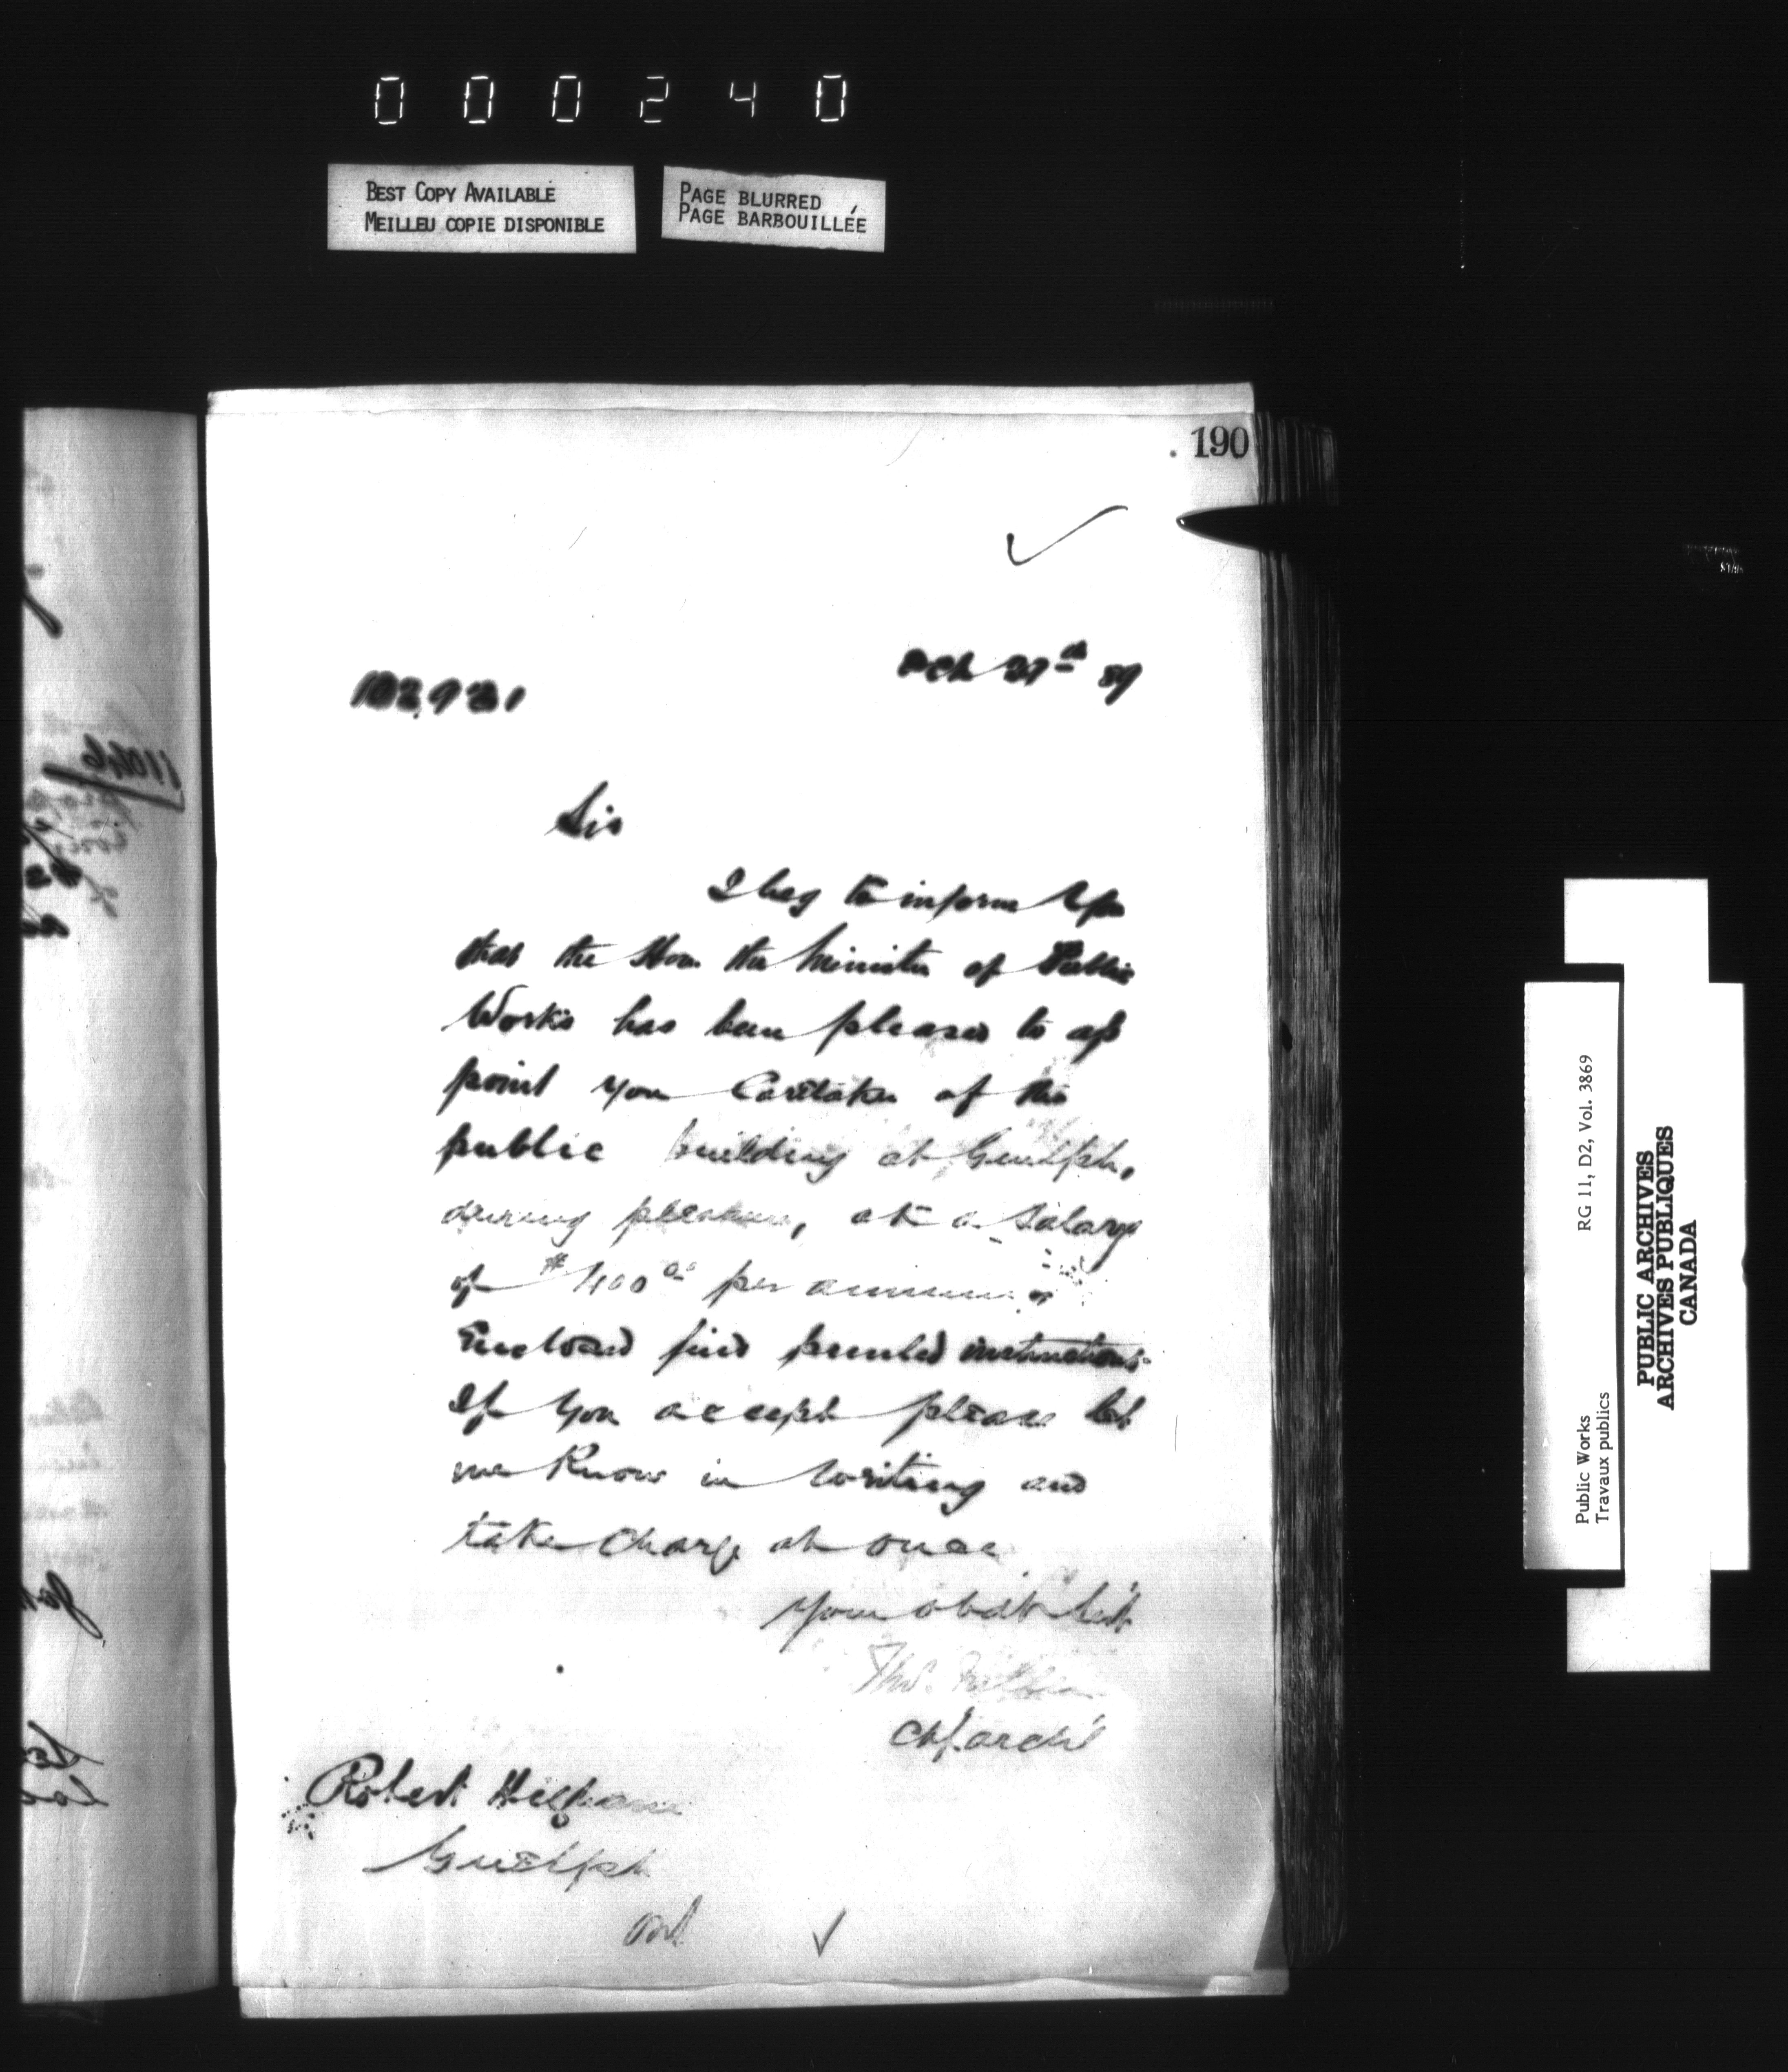 000240
BEST COPY AVAILABLE
MEILLEU COPIE DISPONIBLE
PAGE BLURRED
PAGE BARBOUILLÉE
190
Oct th 89
Sir
I beg to inform you
that the Hon. the Minister of Public
Works has been pleased to ap
point you Caretaker of the
public building at Guelph,
during pleasure, at a salary
of $400 00 per annum.
Enclosed find printed instructions.
If you accept please let
me Know in writing and
take Charge at once
Your obdt Sert
Thos. Fuller
Chf. archt
Robert
Guelph
Ont
RG 11, D2, Vol. 3869
Public Works
Travaux publics
PUBLIC ARCHIVES
ARCHIVES PUBLIQUES
CANADA